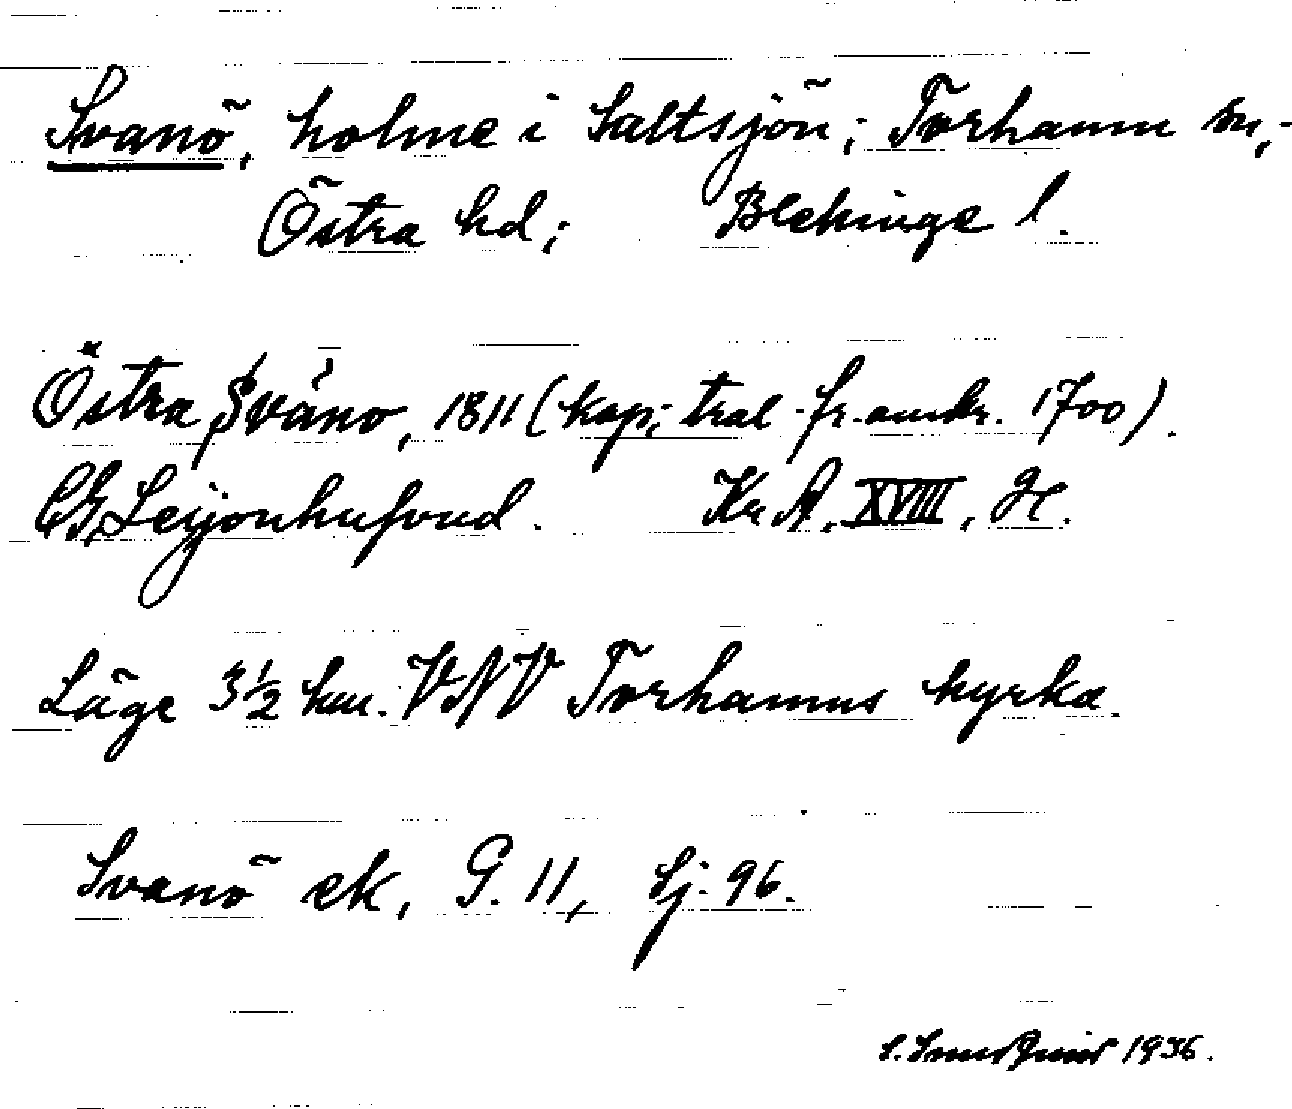 Svanö, holme i Saltsjön; Torhamn sn,
Östra hd; Blekinge l.
Östra Svänö, 1811 (kop; tral fr. omkr. 1700).
CG Leijonhufvud. Kr A, XVIII, H.
Läge 3½ km. VNV Torhamns kyrka.
Svanö ek, G. 11, Sj. 96.
1936.